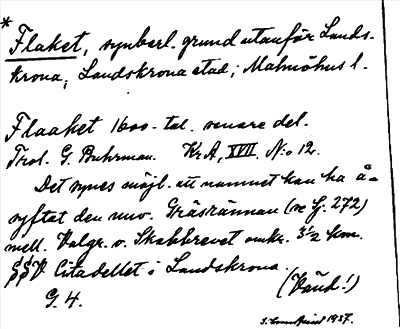 * Flaket, synbarl. grund utanför Lands-
krona; Landskrona stad; Malmöhus l.
Flaaket 1600-tal. senare del.
Trol. G. Buhrman. Kr A, XVII. N:o 12.
Det synes möjl. att namnet kan ha å-
syftat den nuv. Gräsrännan (se fg. 272)
mell. Valgr. o. Skabbrevet omkr. 3½ km.
SSV Citadellet i Landskrona.
(Vänd!)
G. 4.
1937.